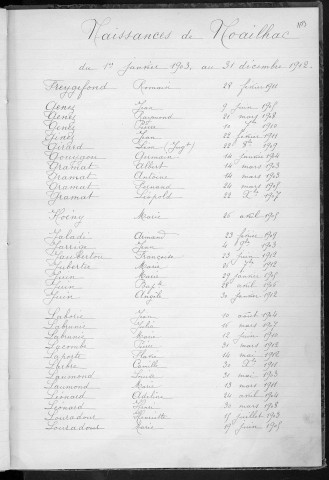 Naissances de Noailhac
du 1er Janvier 1903, au 31 décembre 1912.
Freygefond Romain 28 février 1911
Genez Jean 9 juin 1905
Genez Raymond 21 mars 1908
Genez Pierre 10 1910
Genez Jean 22 février 1911
Girard 22 1909
Gouygou Germain 14 janvier 1904
Gramat Albert 14 mars 1903
Gramat Antoine 14 mars 1903
Gramat Fernand 24 mars 1905
Gramat Léopold 22 1907
Hoeny Marie 26 avril 1905
Jaladi Armand 23 février 1909
Jarrige Jean 4 1903
Jauberton Françoise 23 juin 1912
Jubertie Marie 1912
Juin Marie 29 janvier 1905
Juin 28 avril 1906
Juin Angèle 30 janvier 1912
Laborie Jean 10 août 1904
Labrunie Julia 16 mars 1907
Labrunie 12 juin 1910
Lacombe Pierre 30 mars 1912
Lapeyre 14 mai 1912
Larbre Camille 30 1911
Laumond 30 mai 1903
Laumond Marie 13 mars 1911
Leonard Adeline 24 avril 1904
Leonard Jean 30 mars 1908
Louradour Henriette 15 juillet 1903
Louradour Marie 19 juin 1905